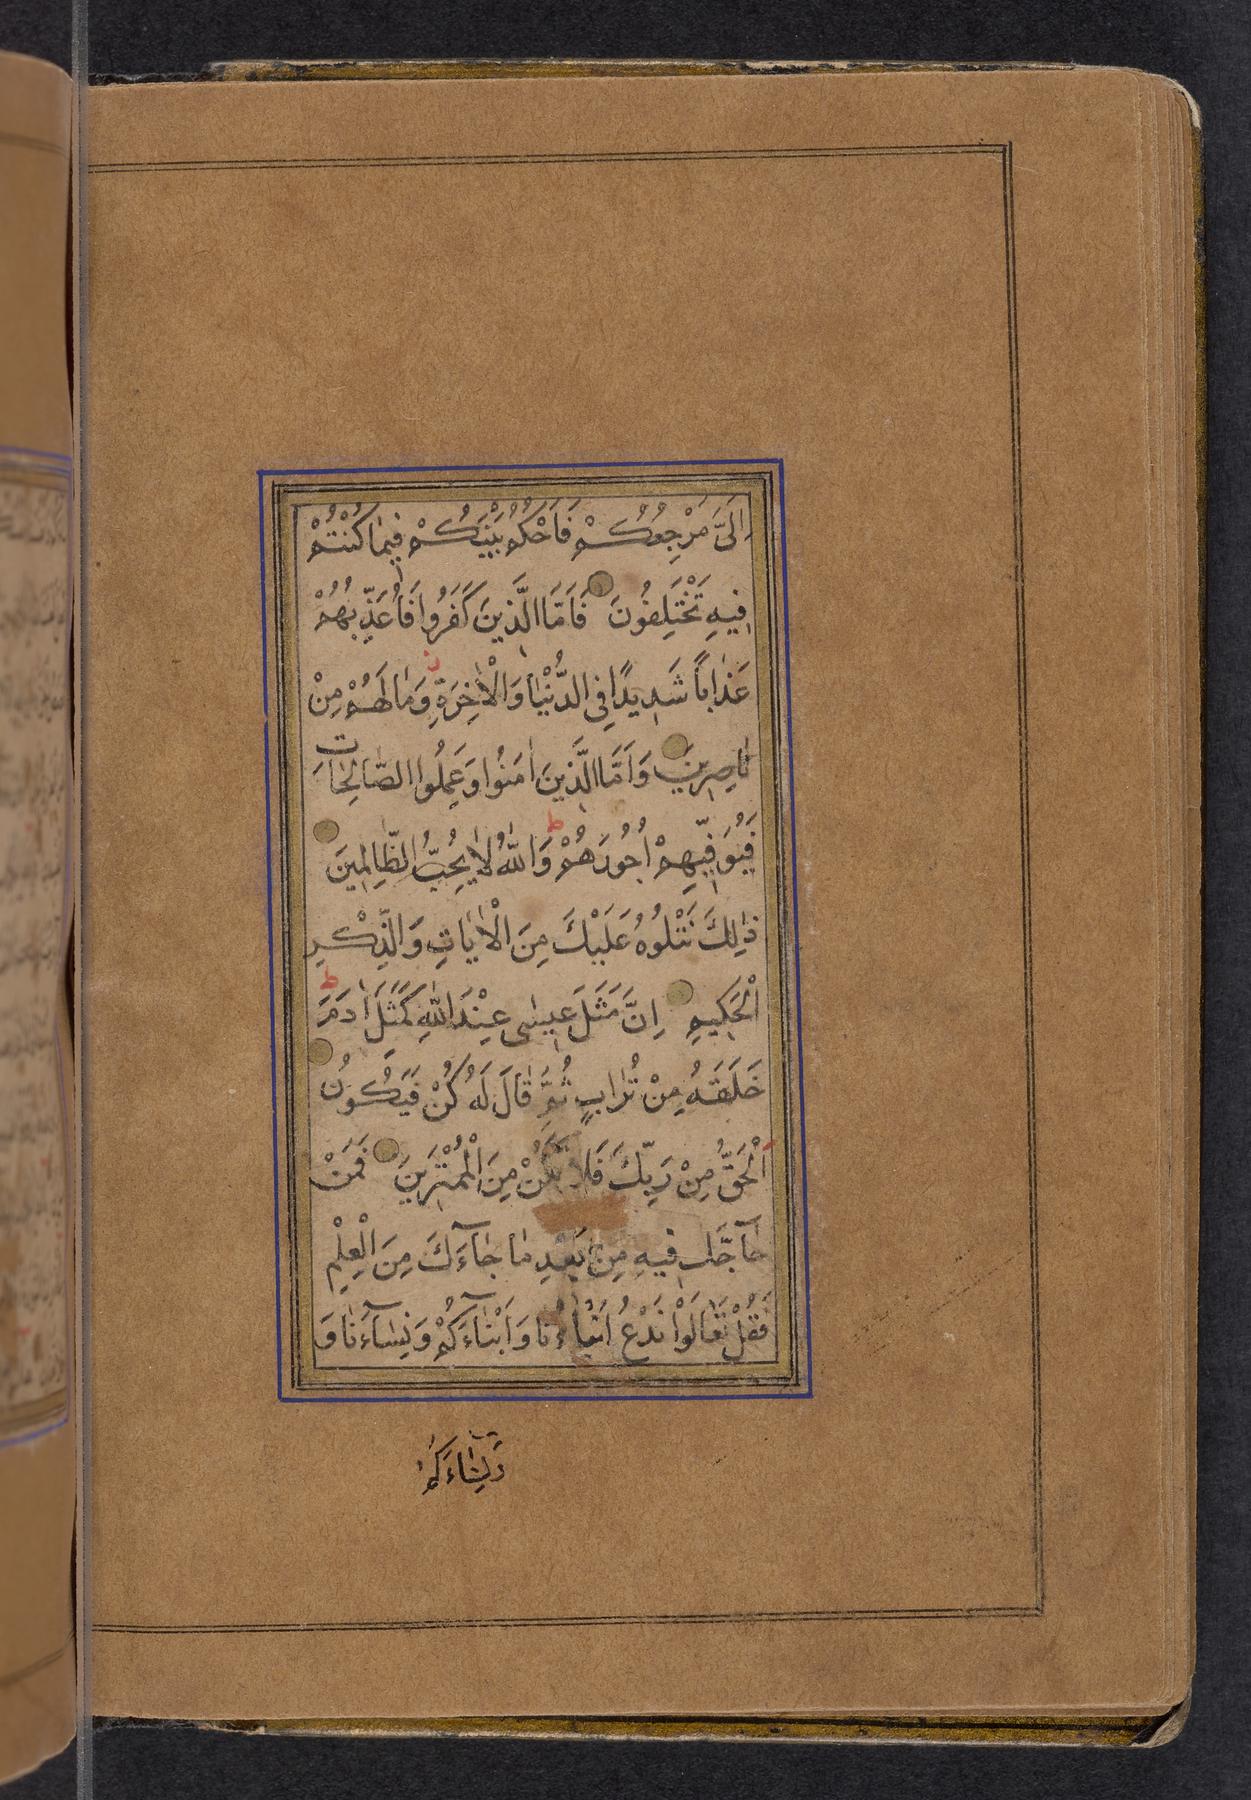 اِلَىَّ مَرْجِعُكُمْ فَاَحْكُمُ بَيْنَكُمْ فِيمَا كُنْتُمْ
فِيهِ تَخْتَلِفُونَ فَاَمَّا الَّذِينَ كَفَرُوا فَاُعَذِّبُهُمْ
عَذَابًا شَدِيدًا فِي الدُّنْيَا وَالْاٰخِرَةِ وَمَا لَهُمْ مِنْ
نَاصِرِينَ وَاَمَّا الَّذِينَ اٰمَنُوا وَعَمِلُوا الصَّالِحَاتِ
فَيُوَفِّيهِمْ اُجُورَهُمْ وَاللّٰهُ لَا يُحِبُّ الظَّالِمِينَ
ذٰلِكَ نَتْلُوهُ عَلَيْكَ مِنَ الْاٰيَاتِ وَالذِّكْرِ
الْحَكِيمِ اِنَّ مَثَلَ عِيسٰى عِنْدَ اللّٰهِ كَمَثَلِ اٰدَمَ
خَلَقَهُ مِنْ تُرَابٍ ثُمَّ قَالَ لَهُ كُنْ فَيَكُونُ
اَلْحَقُّ مِنْ رَبِّكَ فَلَا تَكُنْ مِنَ الْمُمْتَرِينَ فَمَنْ
حَاجَّكَ فِيهِ مِنْ بَعْدِ مَا جَاءَكَ مِنَ الْعِلْمِ
فَقُلْ تَعَالَوْا نَدْعُ اَبْنَاءَنَا وَاَبْنَاءَكُمْ وَنِسَاءَنَا وَ
وَنِسَاءَكُمْ